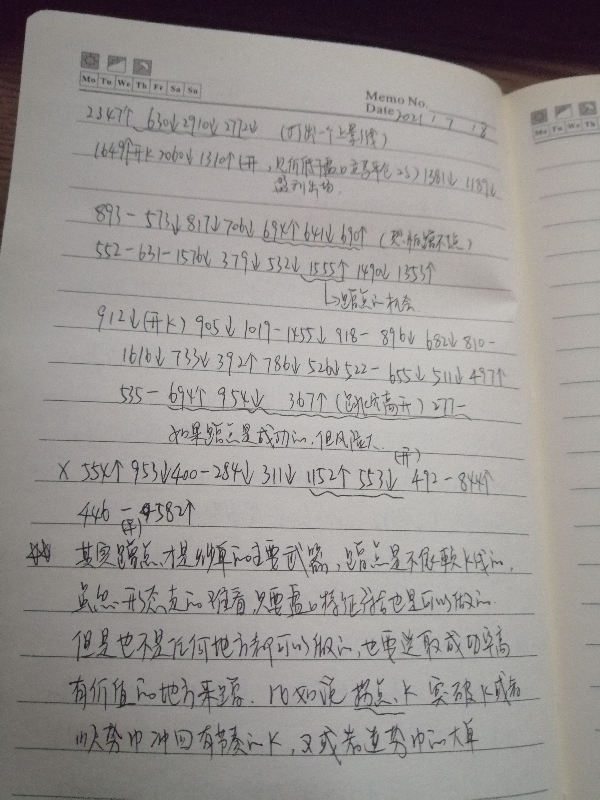 Mo Tu We Th Fr Sa Su
Memo No.
Date 2021 / 7 / 18
2347↑ 630↓ 2910↓ 2772↓ (打出一个上影线)
1649↑开K 2060↓ 1310↑(开，只价低于盘口立马平仓23) 1381↓ 1189↓
盈利出场
893- 573↓ 817↓ 706↓ 694↑ 641↓ 690↑
552-631-1576↓ 379↓ 532↓ 1555↑ 1490↓ 1353↑
↳蹭点的机会
912↓(开K) 905↓ 1019-1455↓ 918- 896↓ 682↓ 810-
1616↓ 733↓ 392↑ 786↓ 526↓ 522- 655↓ 511↓ 497↑
535- 694↑ 954↓ 367↑ 277-
如果蹭点是成功的，但风险大
(开)
× 554↑ 953↓ 400-284↓ 311↓ 1152↑ 553↓ 492-844↑
446-582↑
(开)
其实蹭点才是炒单的主要武器，蹭点是不依赖K线的，
虽然形态走的难看，只要盘口特征存在也是可以做的
但是也不是任何地方都可以做的，也要选取成功率高
有价值的地方来蹭．比如说拐点K 突破K或者
顺势中冲回有节奏的K，又或者逆势中的大单